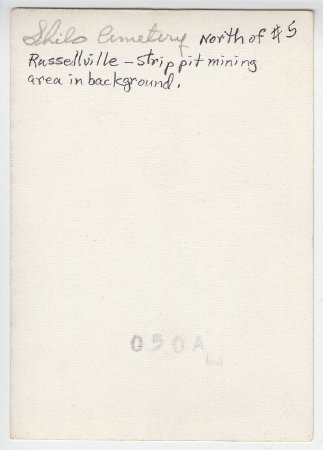 Shilo Cemetery North of #5
Russellville – strip pit mining
area in background.
050A